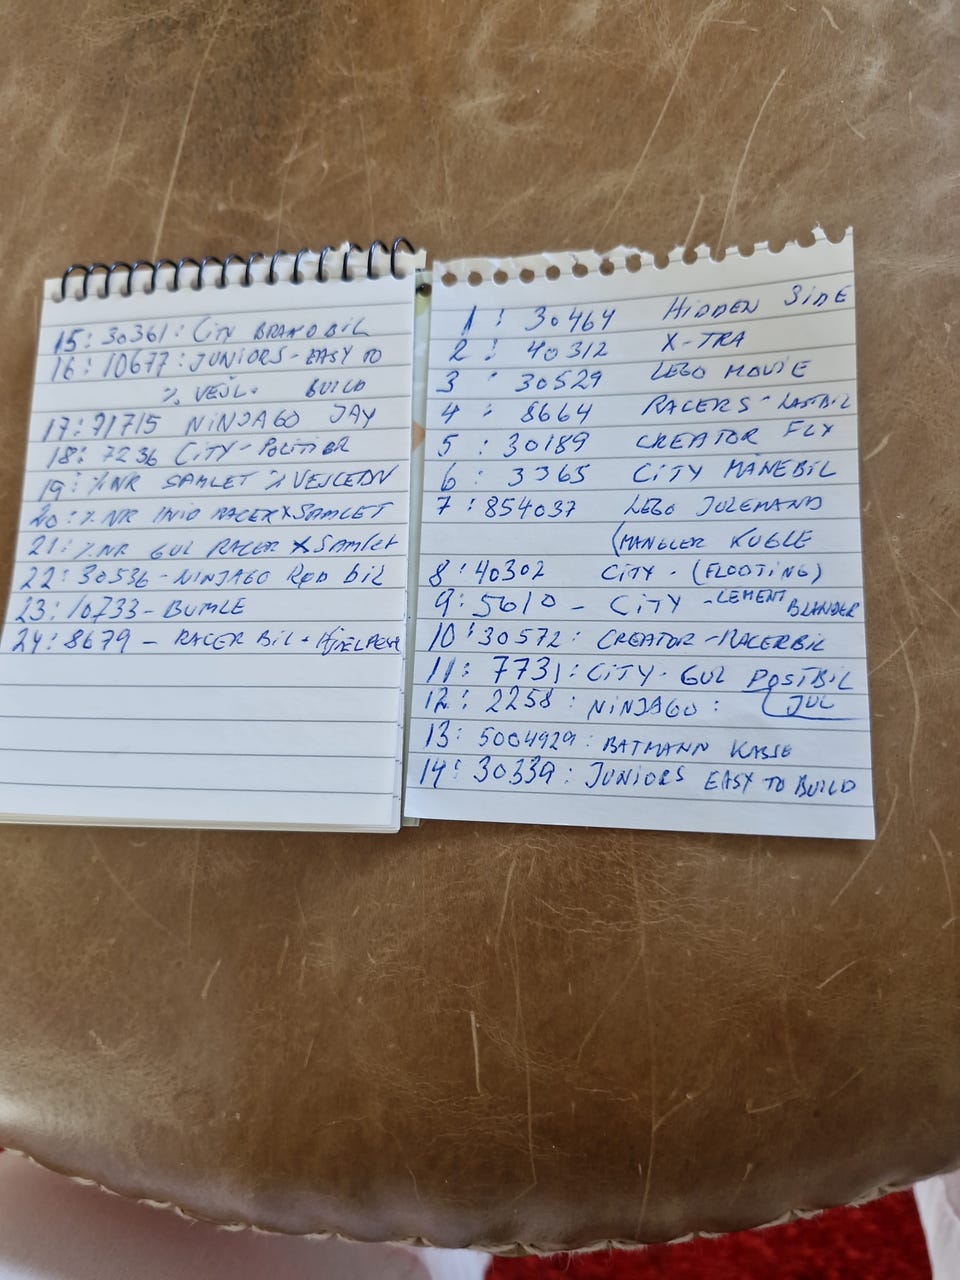 1 : 30464 HIDDEN SIDE
2 : 40312 X-TRA
3 : 30529 LEGO MOVIE
4 : 8664 RACERS - LASTBIL
5 : 30189 CREATOR FLY
6 : 3365 CITY MÅNEBIL
7 : 854037 LEGO JULEMAND
(MANGLER KUGLE
8 : 40302 CITY - (FLOOTING)
9 : 5610 - CITY - CEMENT BLANDER
10 : 30572 : CREATOR - RACERBIL
11 : 7731 : CITY - GUL POSTBIL
12 : 2258 : NINJAGO : JUL
13 : 5004929 : BATMANN KASSE
14 : 30339 : JUNIORS EASY TO BUILD
15 : 30361 : CITY BRANDBIL
16 : 10677 : JUNIORS - EASY TO
% VEJL. BUILD
17 : 71715 NINJAGO JAY
18 : 7236 CITY - POLITIER
19 : % NR SAMLET % VEJLEDN
20 : % NR RACER X SAMLET
21 : % NR GUL RACER X SAMLET
22 : 30536 - NINJAGO RØD BIL
23 : 10733 - BUMLE
24 : 8679 - RACER BIL +